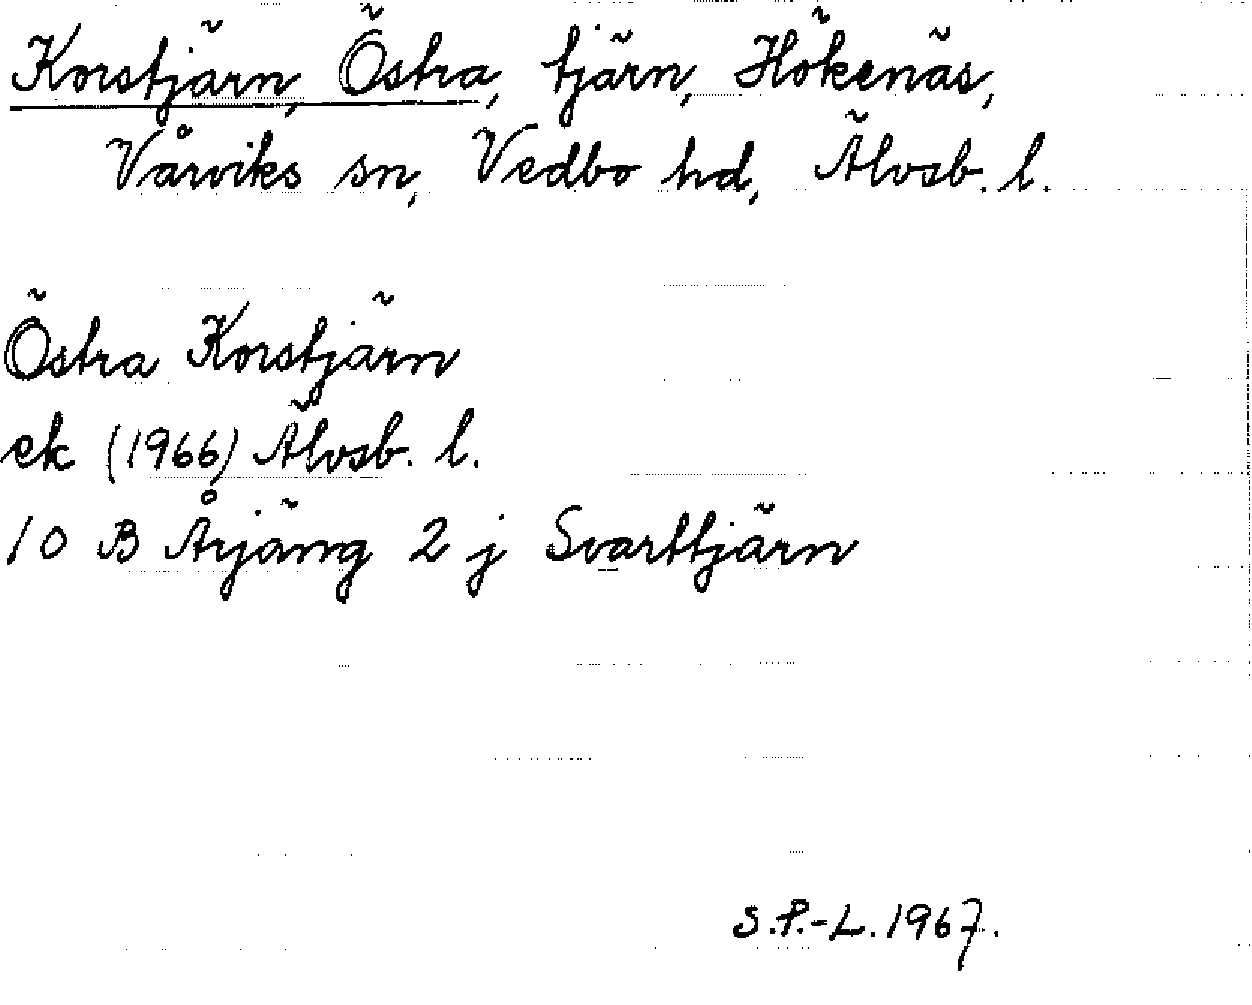 Korstjärn, Östra, tjärn, Hökenäs,
Vårviks sn, Vedbo hd, Älvsb. l.
Östra Korstjärn
ek (1966) Älvsb. l.
10 B Årjäng 2 j Svarttjärn
S.P.-L. 1967.